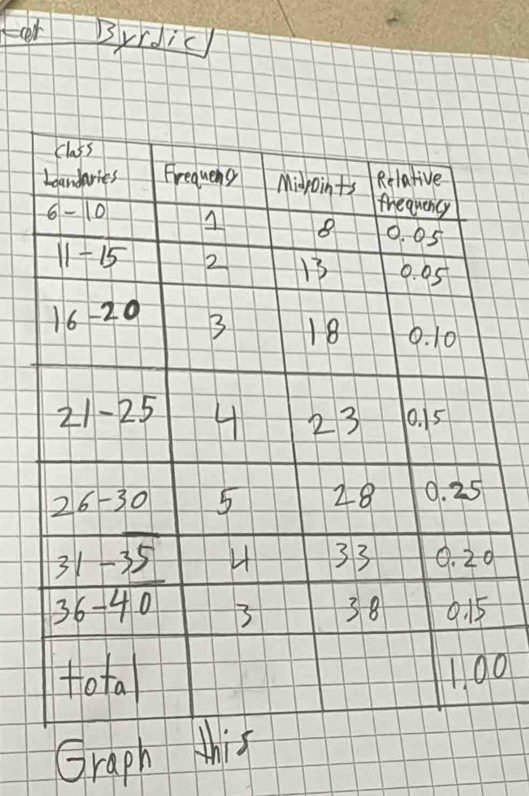 Byrdic
Class boundaries Frequency Midpoints Relative frequency
6-10 1 8 0.05
11-15 2 13 0.05
16-20 3 18 0.10
21-25 4 23 0.15
26-30 5 28 0.25
31-35 4 33 0.20
36-40 3 38 0.15
total 1.00
Graph this